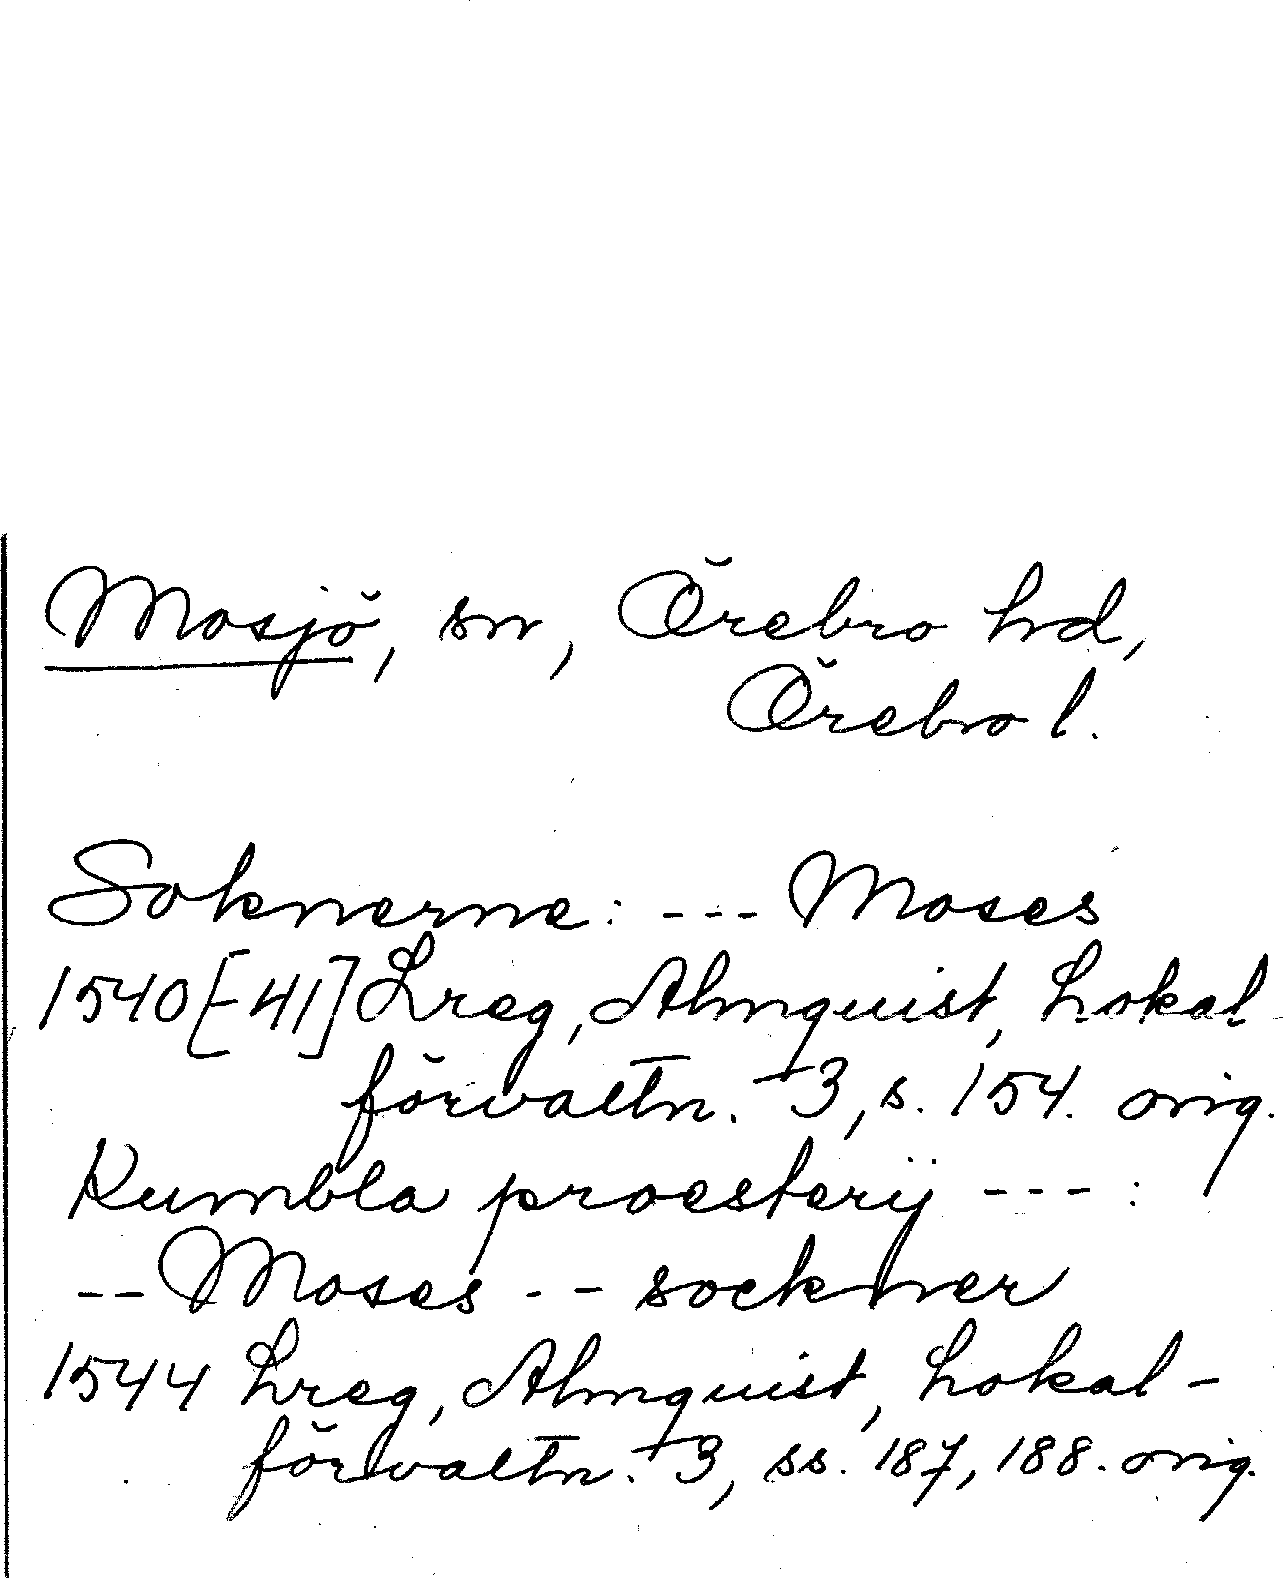 Mosjö, sn, Örebro hd,
Örebro l.
Soknerne: --- Moses
1540[-41] Lreg, Almquist, Lokal
förvaltn. 3, s. 154. orig.
Kumbla proesterij --- :
-- Moses -- sockner
1544 Lreg, Almquist, Lokal-
förvaltn. 3, ss. 187, 188. orig.